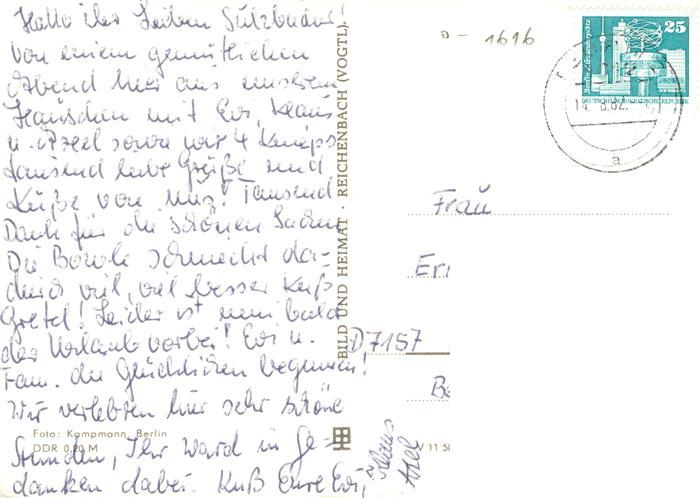 Hallo ihr Lieben Sulzbacher!
Von einem gemütlichen
Abend hier aus unserem
Häuschen mit Evi, Klaus
u. Axel sowie wir 4
tausend liebe Grüße und
Küße von uns! Tausend
Dank für die schönen Sachen
Die Bowle schmeckt da-
durch viel, viel besser Kuß
Gretel! Leider ist nun bald
der Urlaub vorbei! Evi u.
Fam. die Glücklichen beginnen!
Wir verlebten hier sehr schöne
Stunden, Ihr ward in Ge-
danken dabei. Kuß Eure Evi,
Klaus
Axel
Foto: Kampmann, Berlin
DDR 0,20 M
BILD UND HEIMAT · REICHENBACH (VOGTL)
a - 1616
25
Berlin, Alexanderplatz
DEUTSCHE DEMOKRATISCHE REPUBLIK
14. 8.82.
a
Frau
Eri
D7157
Ba
V 11 50